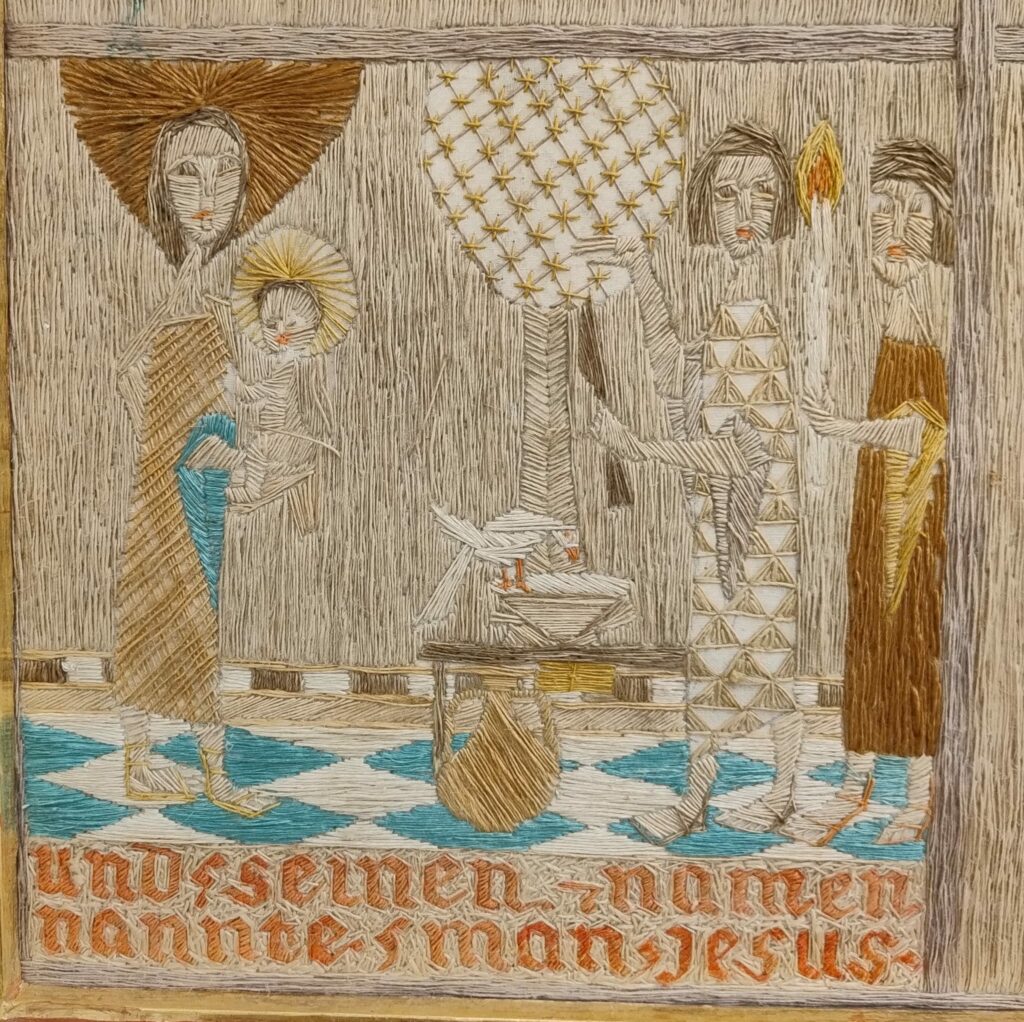 und seinen namen
nannte man jesus